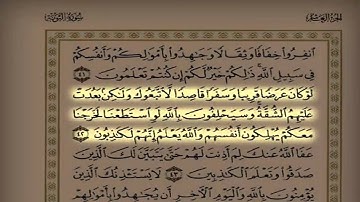 الجزء العاشر سورة التوبة
انفروا خفافا وثقالا وجاهدوا بأموالكم وأنفسكم
في سبيل الله ذلكم خير لكم إن كنتم تعلمون ٤١
لو كان عرضا قريبا وسفرا قاصدا لاتبعوك ولكن بعدت
عليهم الشقة وسيحلفون بالله لو استطعنا لخرجنا
معكم يهلكون أنفسهم والله يعلم إنهم لكاذبون ٤٢
عفا الله عنك لم أذنت لهم حتى يتبين لك الذين
صدقوا وتعلم الكاذبين ٤٣ لا يستئذنك الذين
يؤمنون بالله واليوم الآخر أن يجاهدوا بأموالهم